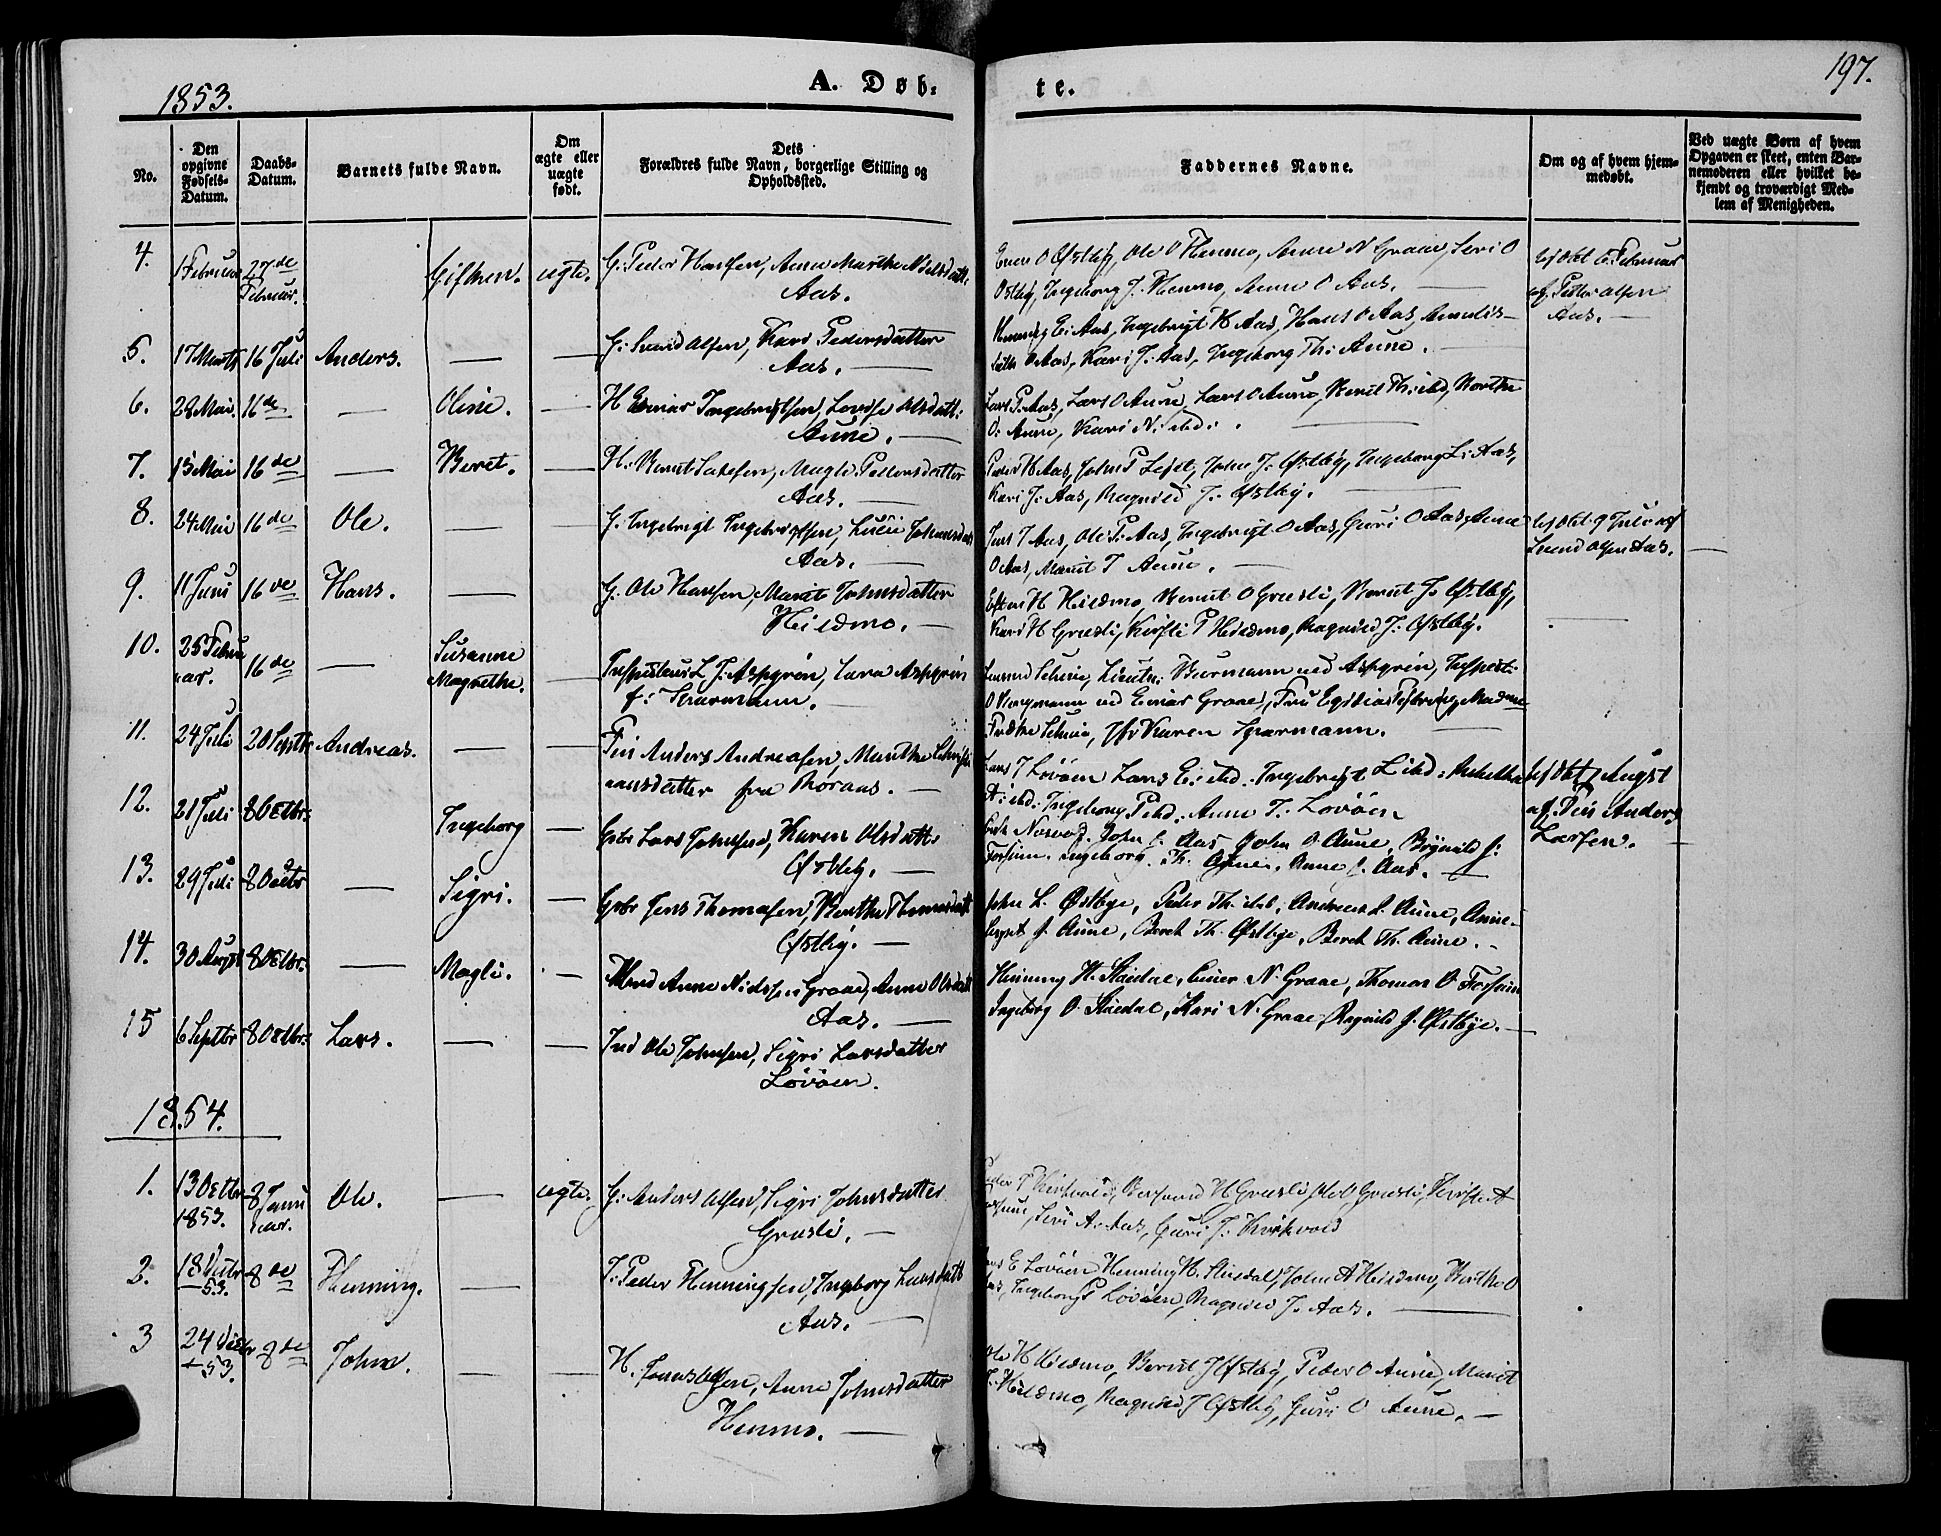 1853.
A. Døb-
te.
197.
No.
Den opgivne Fødsels-Datum.
Daabs-Datum.
Barnets fulde Navn.
Om ægte eller uægte født.
Dets Forældres fulde Navn, borgerlige Stilling og Opholdssted.
Faddernes Navne.
Om og af hvem hjem-medøbt.
Ved uægte Børn af hvem Opgaven er skeet, enten Bar-nemoderen eller hvilket be-kjendt og troværdigt Med-lem af Menigheden.
4. 1 Februar 27de Februar. ægte. G. Peder Hansen, Anne Marthe Nielsdatt.
Aas. —
Ole O Henmo, Anne N Graae, Siri O
Østby, Ingeborg J. Henmo, Anne O Aas. —
hjdbt 6 Februar
af Peder Olsen
Aas. —
5. 17 Marts 16 Juli Anders. — — G. Svend Olsen, Kari Pedersdatter
Aas. —
Henning E. Aas, Ingebrigt H Aas, Hans O Aas,
O Aas, Kari J. Aas, Ingeborg Th. Aune. —
6. 28 Mai. 16de — Oline. — H Einar Ingebrigtsen, Lovise Olsdatt.
Aune. —
Lars P. Aas, Lars O Aune, Lars O Aune, Bernt Th. ibd, Marthe
O. Aune, Kari N. ibd. —
7. 15 Mai 16de — Beret. — H. Bernt Larsen, Magli Pedersdatter
Aas. —
Peder H Aas, John P Lejet, John J. Østby, Ingeborg L. Aas,
Kari J. Aas, Ragnild J. Østby. —
8. 24 Mai 16de Ole. — — G. Ingebrigt Ingebrigtsen, Lucie Johnsdatt
Aas. —
Jens J Aas, Ole P. Aas, Ingebrigt O Aas, Guri O Aas, Anne
O Aas, Marit T Aune. —
hjdbt 9 Juli af
Svend Olsen Aas. —
9. 11 Juni 16de Hans. — G. Ole Hansen, Marit Johnsdatter
Heidmo. —
Esten H Heidmo, Bernt O Gruesli, Bernt J. Østby,
Kari H Gruesli, Kirsti P Heidmo, Ragnild J. Østby.
10. 25 Februar. 16de — Susanne
Magrethe. — L. J. Aspgren, Lara Aspgren
f. Sparmann. —
Bærmann ved Aspgren, Inspect.
O Bergmann ved Einar Graae, Fru Egidia
Jfr Karen Sparmann. —
11. 24 Juli 20 Septbr Andreas. — — Fin Anders Andreasen, Marethe
ansdatter fra Røraas. —
Lars J Løvøen Lars E. ibd. Ingebrigt L ibd.
A. ibd. Ingeborg P ibd. Anne J. Løvøen
hjdbt 7 August
af Fin Anders
Larsen. —
12. 21 Juli 8 Octbr. Ingeborg — Gbr Lars Johnsen, Karen Olsdatt.
Østby. —
John J. Aas John O Aune, Ragnild J.
Forsum. Ingeborg Th. Aune. Anne J. Aas. —
13. 29 Juli 8 Octbr — Sigri. — Gbr Jens Thomasen, Berthe Thomasdatt
Østby. —
John L. Østbye, Peder Th. ibd. Andreas L. Aune, Anne
J. Aune, Beret Th. Østbye, Beret Th. Aune. —
14. 30 August 8 Octbr. — Magli. — Arne Nielsen Graae, Anne Olsdatt
Aas. —
Henning H. Stuedal, Einar N. Graae, Thomas O Forsum
Ingeborg O. Stuedal, Kari N. Graae, Ragnild J. Østbye. —
15 6 Septbr 8 Octbr. Lars. — — Ind Ole Johnsen, Sigri Larsdatter
Løvøen.
1854.
1. 13 Octbr
1853. 8 Januar. Ole. — ægte. G. Anders Olsen, Sigri Johnsdatter
Gruesli. —
Peder P Kirkvold, H Gruesli, Ole O Gruesli, Kirsti A
Siri A. Aas, Guri J. Kirkvold
2. 18 Octbr
53. 8de Henning. — J. Peder Henningsen, Ingeborg Larsdatt
Aas. —
E Løvøen, Henning H. Stuedal, John A Heidmo, Berthe O
Ingeborg P Løvøen, Ragnild J. Aas. —
3 24 Octbr
53. 8de John. — — H. Jens Olsen, Anne Johnsdatter
Henmo. —
Ole H Heidmo, Bernt J Østby, Peder O Aune, Marit
J. Heidmo, Ragnild J Østby, Guri O Aune. —